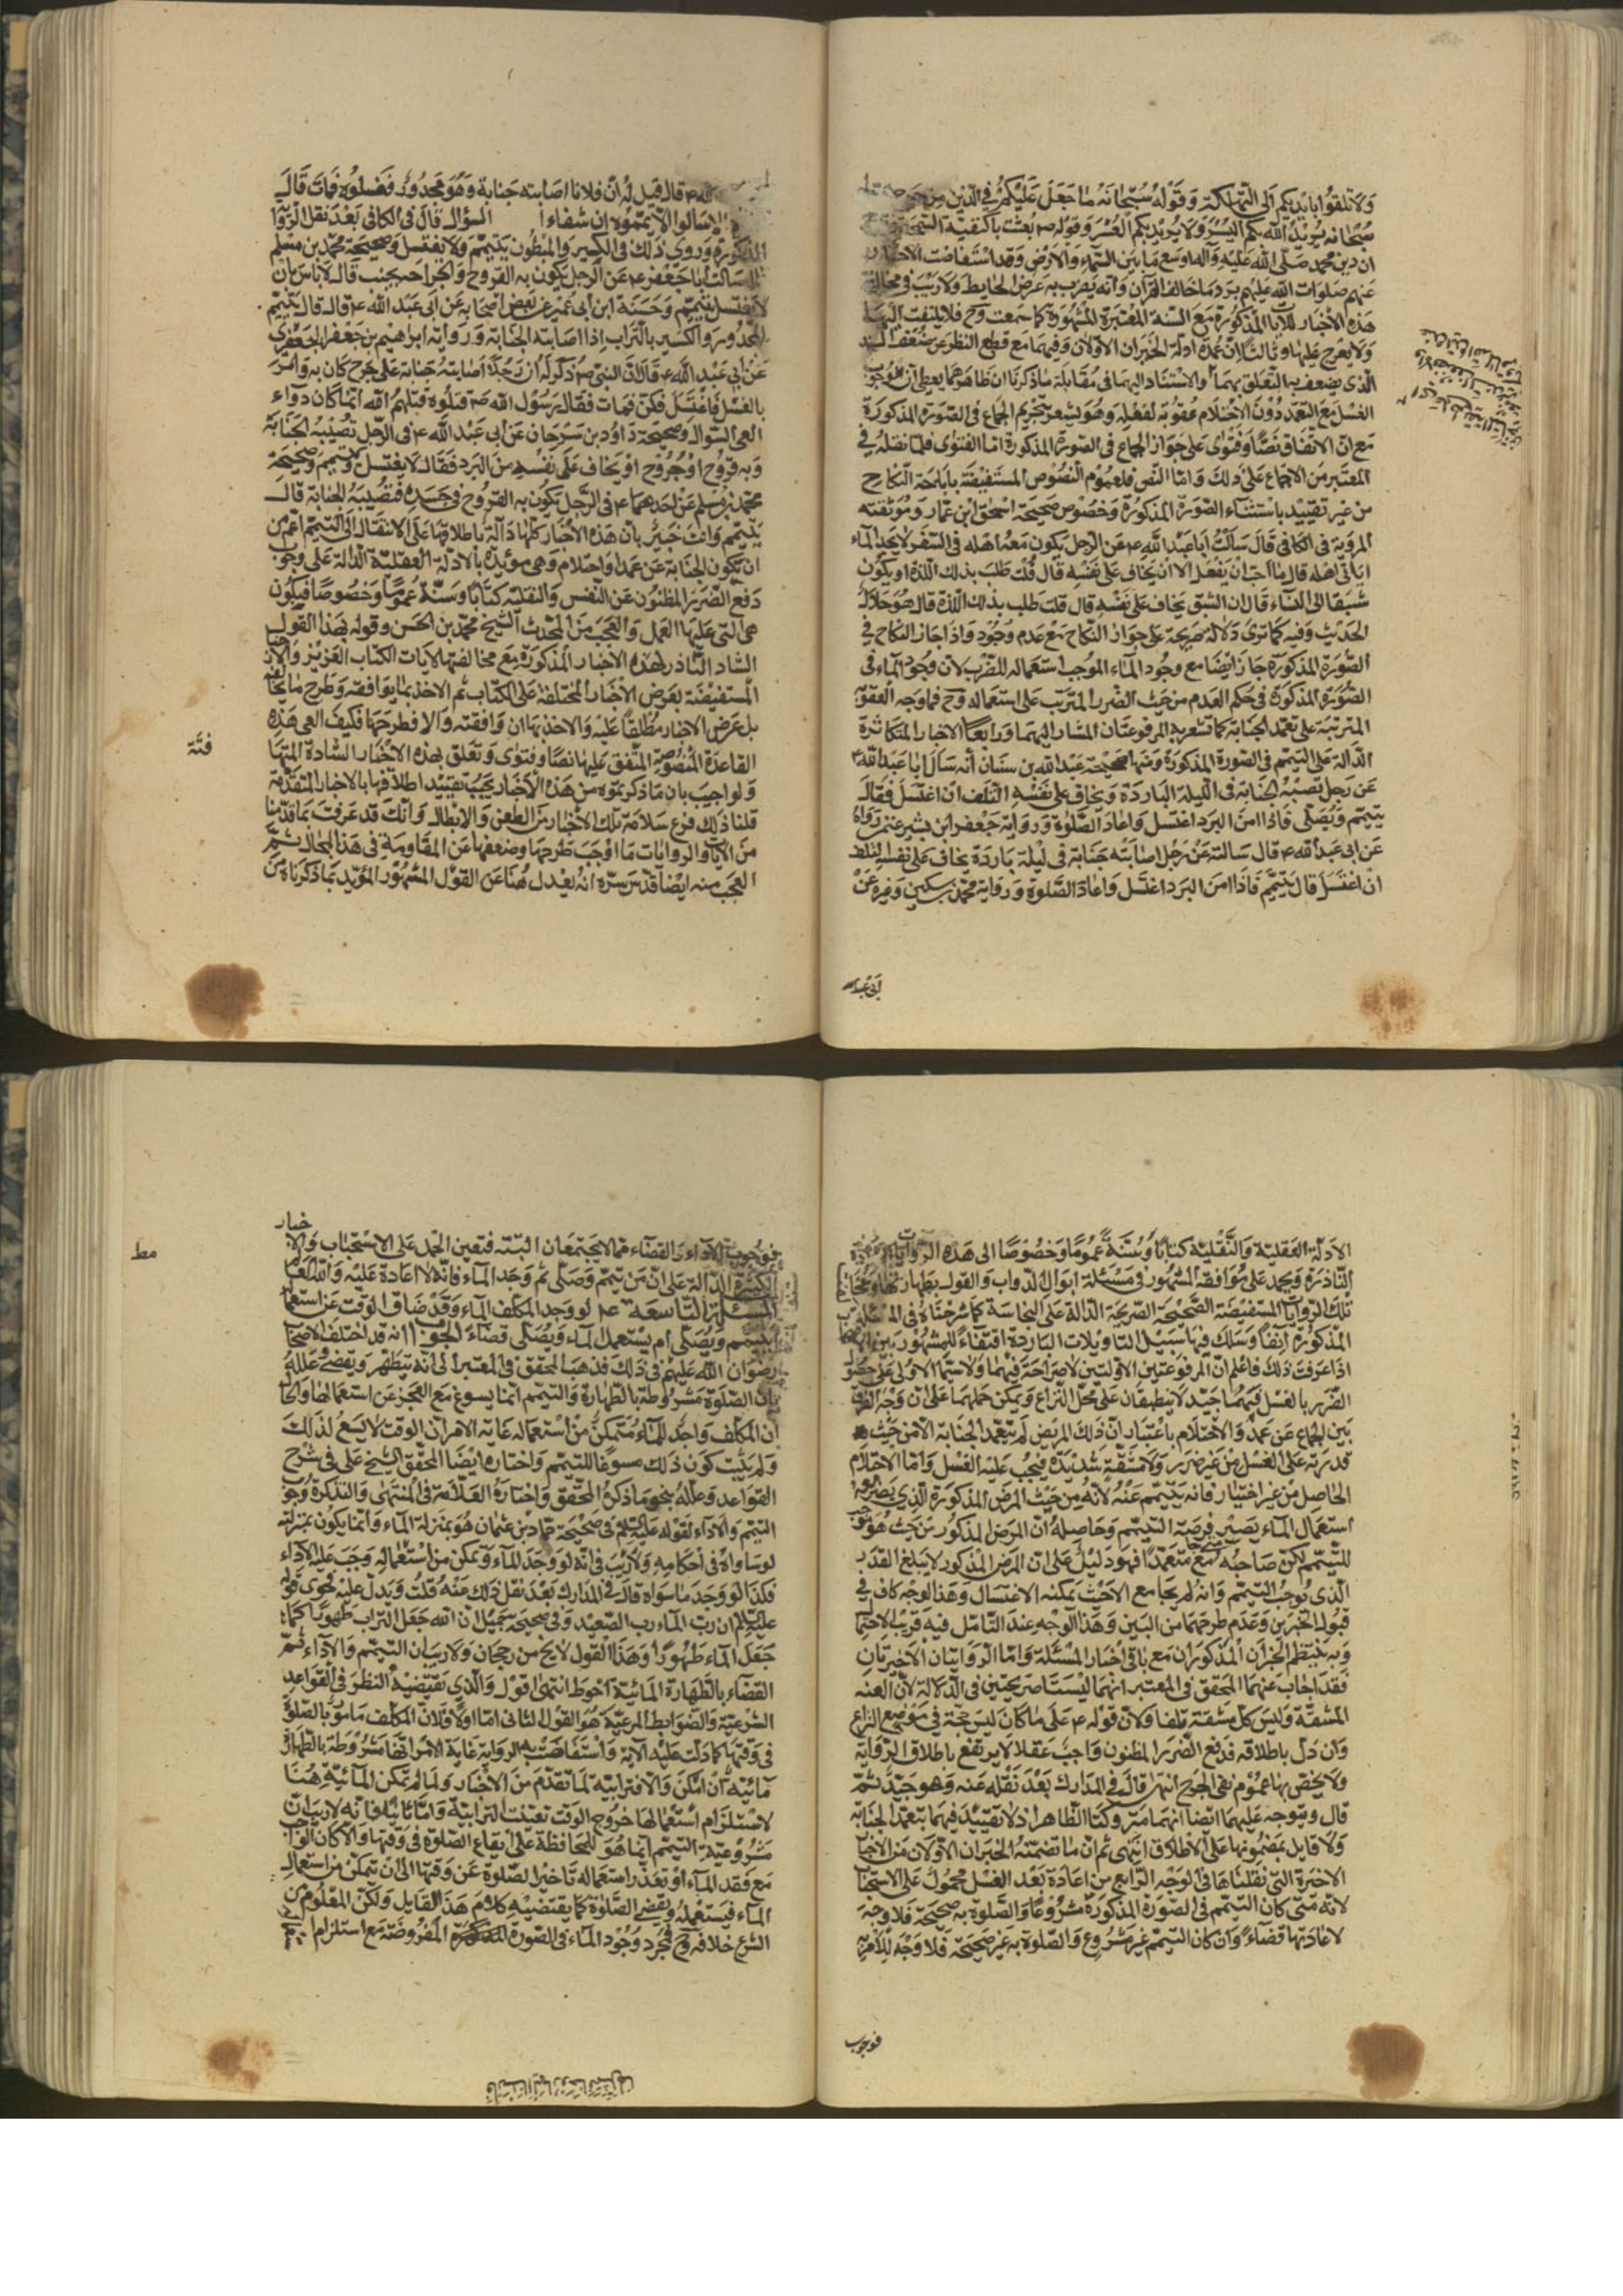 ولا تلقوا بايديكم الى التهلكة وقوله سبحانه ما جعل عليكم في الدين من حرج
سبحانه يريد الله بكم اليسر ولا يريد بكم العسر وقوله ص بعثت بالحنيفية السمحة
ان دين محمد صلى الله عليه وآله اوسع ما بين السماء والارض وقد استفاضت الاخبار
عنهم صلوات الله عليهم برد ما خالف القرآن وانه يضرب به عرض الحايط ولا ريب في مخالفة
هذه الاخبار للآيات المذكورة مع السنة المعتبرة المشهورة كما سمعت وح فلا يلتفت اليها
ولا يعرج عليها وثالثا ان عمدة ادلة الخبران الاولان وفيهما مع قطع النظر عن ضعف السند
الذي يضعف به التعلق بهما والاستناد اليهما في مقابلة ما ذكرنا ان ظاهرهما يعطي ان وجوب
الغسل مع التعمد دون الاحتلام عقوبة لفعله وهو يشعر بتحريم الجماع في الصورة المذكورة
مع ان الاتفاق نصا وفتوى على جواز الجماع في الصورة المذكورة اما الفتوى فلما نقله في
المعتبر من الاجماع على ذلك واما النص فلعموم النصوص المستفيضة باباحة النكاح
من غير تقييد باستثناء الصورة المذكورة وخصوص صحيحة اسحق ابن عمار وموثقته
المروية في الكافي قال سالت ابا عبد الله ع عن الرجل يكون معه اهله في السفر لا يجد الماء
اياتي اهله قال ما احب ان يفعل الا ان يخاف على نفسه قال قلت طلب بذلك اللذة او يكون
شبقا الى النساء قال ان الشبق يخاف على نفسه قال قلت طلب بذلك اللذة قال هو حلال
الحديث وفيه كما ترى دلالة صريحة على جواز النكاح مع عدم وجود واذا جاز النكاح في
الصورة المذكورة جاز ايضا مع وجود الماء الموجب استعماله للضرر لان وجود الماء في
الصورة المذكورة في حكم العدم من حيث الضرر المترتب على استعماله وح فما وجه العقوبة
المترتبة على تعمد الجنابة كما تشعر به المرفوعتان المشار اليهما ورابعا الاخبار المتكاثرة
الدالة على التيمم في الصورة المذكورة ومنها صحيحة عبد الله بن سنان انه سال ابا عبد الله ع
عن رجل تصيبه الجنابة في الليلة الباردة ويخاف على نفسه التلف ان اغتسل فقال
يتيمم ويصلي فاذا امن البرد اغتسل واعاد الصلوة ورواية جعفر ابن بشير عمن رواه
عن ابي عبد الله ع قال سالته عن رجل اصابته جنابة في ليلة باردة يخاف على نفسه التلف
ان اغتسل قال يتيمم فاذا امن البرد اغتسل واعاد الصلوة ورواية محمد بن سكين وغيره عن
ابي عبد الله
قال قيل له ان فلانا اصابته جنابة وهو مجدور فغسلوه فمات قال
الا سالوا الا يمموه ان شفاء السؤال قال في الكافي بعد نقل الرواية
المذكورة وروي ذلك في الكسير والمبطون يتيمم ولا يغتسل وصحيحة محمد بن مسلم
سالت ابا جعفر ع عن الرجل يكون به القروح والجراحة يجنب قال لا باس بان
لا يغتسل يتيمم وحسنة ابن ابي عمير عن بعض اصحابه عن ابي عبد الله ع قال قال يتيمم
المجدور والكسير بالتراب اذا اصابته الجنابة ورواية ابراهيم بن جعفر الجعفري
عن ابي عبد الله ع قال ان النبي ص ذكر له ان رجلا اصابته جنابة على جرح كان به فامر
بالغسل فاغتسل فكز فمات فقال رسول الله ص قتلوه قتلهم الله انما كان دواء
العي السؤال وصحيحة داود بن سرحان عن ابي عبد الله ع في الرجل تصيبه الجنابة
وبه قروح او جروح او يخاف على نفسه من البرد فقال لا يغتسل ويتيمم وصحيحة
محمد بن مسلم عن احدهما ع في الرجل يكون به القروح في جسده فتصيبه الجنابة قال
يتيمم وانت خبير بان هذه الاخبار كلها دالة باطلاقها على الانتقال الى التيمم اعم من
ان تكون الجنابة عن عمد او احتلام وهي مؤيدة بالادلة العقلية الدالة على وجوب
دفع الضرر المظنون عن النفس والنقلية كتابا وسنة عموما وخصوصا فيكون
هي التي عليها العمل والعجب من المحدث الشيخ محمد بن الحسن وقوله بهذا القول
الشاذ النادر لهذه الاخبار المذكورة مع مخالفتها لآيات الكتاب العزيز والاخبار
المستفيضة بعرض الاخبار المختلفة على الكتاب ثم الاخذ بما يوافقه وطرح ما يخالفه
بل عرض الاخبار مطلقا عليه والاخذ بها ان وافقته والا فطرحها فكيف العمى هذه
القاعدة المنصوصة المتفق عليها نصا وفتوى وتعلق بهذه الاخبار الشاذة المتهافتة
ولو اجيب بان ما ذكرتموه من هذه الاخبار يجب تقييد اطلاقها بالاخبار المتقدمة
قلنا ذلك فرع سلامة تلك الاخبار من الطعن والابطال وانك قد عرفت بما قدمنا
من الآيات والروايات ما اوجب طرحها وضعفها عن المقاومة في هذا المجال ثم
العجب منه ايضا قدس سره انه يعدل هنا عن القول المشهور المؤيد بما ذكرناه من
الادلة العقلية والنقلية كتابا وسنة عموما وخصوصا الى هذه الروايات
النادرة ويجمد على موافقة المشهور في مسئلة ابوال الدواب والقول بطهارتها
تلك الروايات المستفيضة الصحيحة الصريحة الدالة على النجاسة كما شرحناه في المسئلة
المذكورة آنفا وسلك فيها سبيل التاويلات الباردة اقتفاء للمشهور بين
اذا عرفت ذلك فاعلم ان المرفوعتين الاوليتين لا صراحة فيهما ولا سيما الاولى على حصول
الضرر بالغسل فيهما جيد لا ينطبقان على محل النزاع ويمكن حملهما على ان وجه الفرق
بين الجماع عن عمد والاحتلام باعتبار ان ذلك المريض لم يتعمد الجنابة الا من حيث
قدرته على الغسل من غير ضرر ولا مشقة شديدة فيجب عليه الغسل واما الاحتلام
الحاصل من غير اختيار فانه يتيمم عنه لانه من حيث المرض المذكورة الذي
استعمال الماء يصير فرضه التيمم وحاصله ان المرض المذكور من حيث هو موجب
للتيمم لكن صاحبه متعمدا فهو دليل على ان المرض المذكور لا يبلغ القدر
الذي يوجب التيمم وانه لم يجامع الا حيث يمكنه الاغتسال وهذا الوجه كاف في
قبول الخبرين وعدم طرحهما من البين وهذا الوجه عند التامل فيه قريب الاحتمال
وبه ينتظم الخبران المذكوران مع باقي اخبار المسئلة واما الروايتان الاخيرتان
فقد اجاب عنهما المحقق في المعتبر انهما ليستا صريحتين في الدلالة لان العنت
المشقة وليس كل مشقة تلفا ولان قوله ع على ما كان ليس حجة في موضع النزاع
وان دل باطلاقه فدفع الضرر المظنون واجب عقلا لا يرتفع باطلاق الرواية
ولا يخص بها عموم نفي الحرج انتهى قال في المدارك بعد نقله عنه وهو جيد ثم
قال ويتوجه عليهما ايضا انهما متروكتا الظاهر اذ لا تقييد فيهما بتعمد الجنابة
ولا قايل بمضمونها على الاطلاق انتهى ثم ان ما تضمنته الخبران الاولان من الاخبار
الاخيرة التي نقلناها في الوجه الرابع من اعادة بعد الغسل محمول على الاستحباب
لانه متى كان التيمم في الصورة المذكورة مشروعا والصلوة به صحيحة فلا وجه
لاعادتها قضاء وان كان التيمم غير مشروع والصلوة به غير صحيحة فلا وجه للامر به
فوجوب
فوجوب الاداء والقضاء مما لا يجتمعان البتة فتعين الحمل على الاستحباب والاخبار
الكثيرة الدالة على ان من تيمم وصلى ثم وجد الماء فانه لا اعادة عليه والله العالم
المسئلة التاسعة لو وجد المكلف الماء وقد ضاق الوقت عن استعماله
ايتيمم ويصلي ام يستعمل الماء ويصلي قضاء الجواب انه قد اختلف الاصحاب
رضوان الله عليهم في ذلك فذهب المحقق في المعتبر الى انه يتطهر ويقضي وعلله
بان الصلوة مشروطة بالطهارة والتيمم انما يسوغ مع العجز عن استعمالها والحال
ان المكلف واجد للماء متمكن من استعماله غاية الامر ان الوقت لا يسع لذلك
ولم يثبت كون ذلك مسوغا للتيمم واختاره ايضا المحقق الشيخ علي في شرح
القواعد وعلله بنحو ما ذكره المحقق واختاره العلامة في المنتهى والتذكرة وجوب
التيمم والاداء لقوله عليه السلم في صحيحة حماد بن عثمان هو بمنزلة الماء وانما يكون بمنزلته
لو ساواه في احكامه ولا ريب في انه لو وجد الماء وتمكن من استعماله وجب عليه الاداء
فكذا لو وجد ما ساواه قال في المدارك بعد نقل ذلك عنه قلت ويدل عليه فحوى قوله
عليه السلم ان رب الماء رب الصعيد وفي صحيحة جميل ان الله جعل التراب طهورا كما
جعل الماء طهورا وهذا القول لا يخ من رجحان ولا ريب ان التيمم والاداء ثم
القضاء بالطهارة المائية احوط انتهى اقول والذي يقتضيه النظر في القواعد
الشرعية والضوابط المرعية هو القول الثاني اما اولا فلان المكلف مامور بالصلوة
في وقتها كما دلت عليه الآية واستفاضت به الرواية غاية الامر انها مشروطة بالطهارة
مائية ان امكن والا فترابية لما تقدم من الاخبار ولما لم تمكن المائية هنا
لاستلزام استعمالها خروج الوقت تعينت الترابية واما ثانيا فانه لا ريب ان
مشروعية التيمم انما هو للمحافظة على ايقاع الصلوة في وقتها والا كان الواجب
مع فقد الماء او تعذر استعماله تاخير الصلوة عن وقتها الى ان تمكن من استعمال
الماء فيستعمله ويقضي الصلوة كما يقتضيه كلام هذا القايل ولكن المعلوم من
الشرع خلافه وح فمجرد وجود الماء في الصورة المفروضة مع استلزام